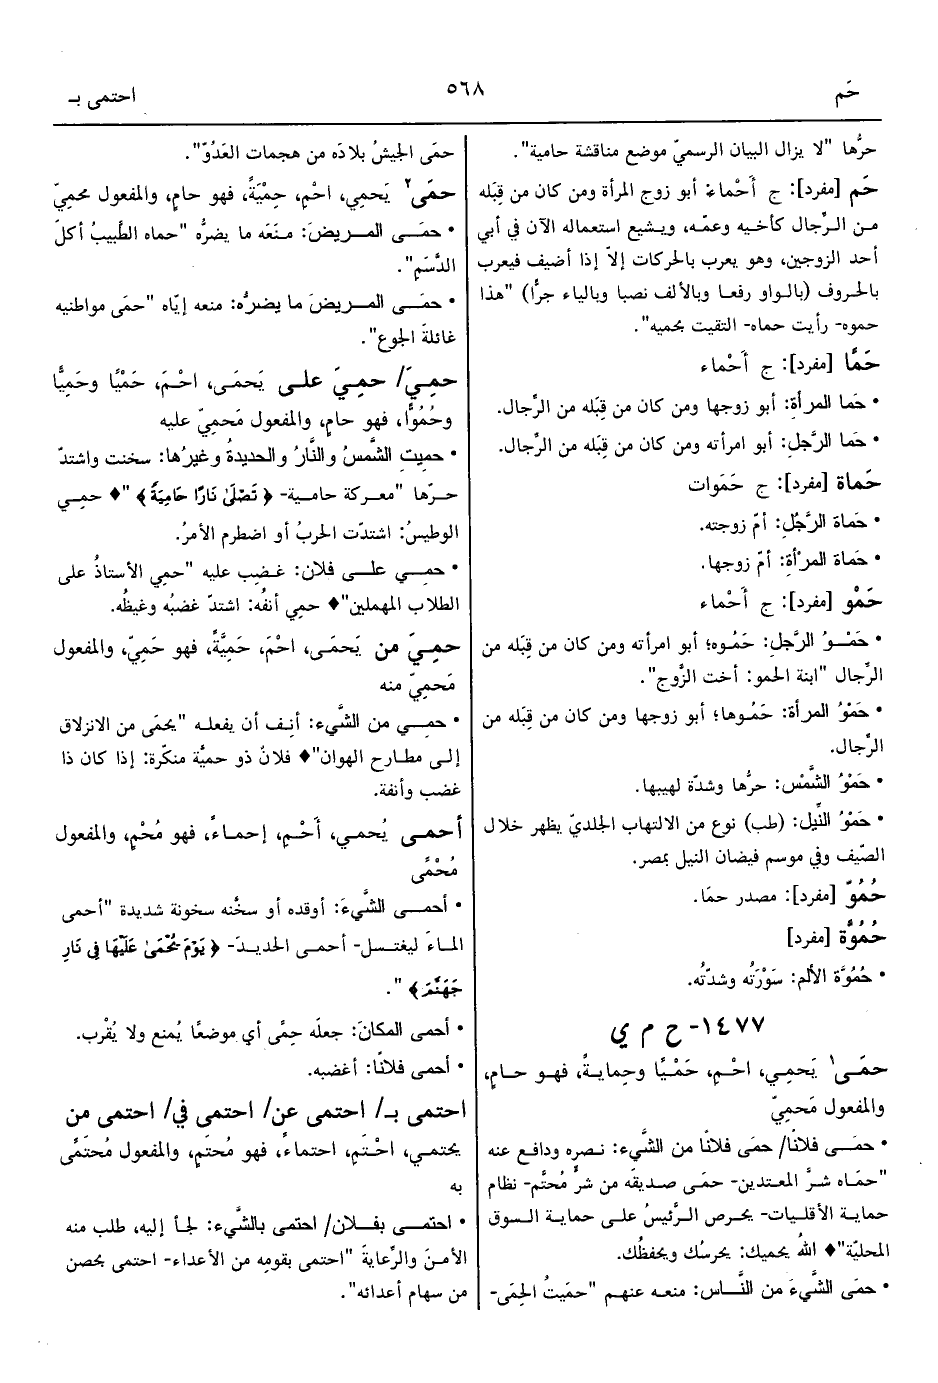 حَم
٥٦٨
احتمى بـ
حرُّها "لا يزال البيان الرسميّ موضع مناقشة حامية".
حَم [مفرد]: ج أَحْماء: أبو زوج المرأة ومن كان من قِبَله
من الرِّجال كأخيه وعمّه، ويشيع استعماله الآن في أبي
أحد الزوجين، وهو يعرب بالحركات إلاّ إذا أضيف فيعرب
بالحروف (بالواو رفعا وبالألف نصبا وبالياء جرًّا) "هذا
حموه- رأيت حماه- التقيت بحميه".
حَمًا [مفرد]: ج أَحْماء
• حَما المرأةِ: أبو زوجها ومن كان من قِبَله من الرِّجال.
• حَما الرَّجل: أبو امرأته ومن كان من قِبَله من الرِّجال.
حَماة [مفرد]: ج حَمَوات
• حَماة الرَّجُلِ: أمّ زوجته.
• حَماة المرْأةِ: أمّ زوجها.
حَمْو [مفرد]: ج أَحْماء
• حَمْـوُ الرَّجل: حَمُوه؛ أبو امرأته ومن كان من قِبَله من
الرِّجال "ابنة الحمو: أخت الزَّوج".
• حَمْوُ المرأة: حَمُوها؛ أبو زوجها ومن كان من قِبَله من
الرِّجال.
• حَمْوُ الشَّمْس: حرُّها وشدّة لهيبها.
• حَمْوُ النِّيل: (طب) نوع من الالتهاب الجلديّ يظهر خلال
الصّيف وفي موسم فيضان النيل بمصر.
حُمُوّ [مفرد]: مصدر حمَا.
حُمُوَّة [مفرد]
• حُمُوَّة الألم: سَوْرَتُه وشدّتُه.
١٤٧٧- ح م ي
حمَى١ يَحمِي، احْمِ، حَمْيًا وحِمايةً، فهو حـامٍ،
والمفعول مَحمِيّ
• حمَـى فلانًا/ حمَى فلانًا من الشَّيء: نـصره ودافع عنه
"حمَاه شرَّ المعتدين- حمَى صديقَه من شرٍّ محتَّم- نظام
حماية الأقليات- يحرص الرَّئيسُ على حماية السوق
المحليّة"♦ اللهُ يحميك: يحرسُك ويحفظُك.
• حمَى الشَّيءَ من النَّـاس: منعه عنهم "حمَيتُ الحِمَى-
حمَى الجيشُ بلادَه من هجمات العَدُوّ".
حمَى٢ يَحمِي، احْمِ، حِمْيَةً، فهو حامٍ، والمفعول محمِيّ
• حمَـى المـريضَ: مـنَعَه ما يضرُّه "حماه الطَّبيبُ أكلَ
الدَّسَم".
• حمَـى المـريضَ ما يضرُّه: منعه إيّاه "حمَى مواطنيه
غائلةَ الجوع".
حمِيَ/ حمِيَ على يَحمَى، احْـمَ، حَمْيًا وحَمِيًّا
وحُمُوًّا، فهو حامٍ، والمفعول مَحمِيّ عليه
• حميتِ الشَّمسُ والنَّارُ والحديدةُ وغيرُها: سخنت واشتدّ
حـرّها "معـركة حامـية- ﴿ تَصْلَىٰ نَارًا حَامِيَةً ﴾ "♦ حمِـي
الوطيسُ: اشتدّت الحربُ أو اضطرم الأمرُ.
• حمِـي علـى فلان: غـضِب عليه "حمِي الأستاذُ على
الطلاب المهملين"♦ حمِي أنفُه: اشتدّ غضبُه وغيظُه.
حمِيَ من يَحمَى، احْمَ، حَمِيَّةً، فهو حَمِيّ، والمفعول
مَحمِيّ منه
• حمِـي من الشَّيء: أنِـف أن يفعلـه "يحمَى من الانزلاق
إلـى مطـارح الهوان"♦ فلانٌ ذو حميَّة منكَرة: إذا كان ذا
غضب وأنفة.
أحمى يُحمِي، أَحْـمِ، إحماءً، فهو مُحْمٍ، والمفعول
مُحْمًى
• أحمـى الشَّيءَ: أوقده أو سخَّنه سخونة شديدة "أحمى
المـاءَ ليغتسل- أحمـى الحديدَ- ﴿ يَوْمَ يُحْمَىٰ عَلَيْهَا فِي نَارِ
جَهَنَّمَ ﴾ ".
• أحمى المكانَ: جعلَه حِمًى أي موضعًا يُمنع ولا يُقْرب.
• أحمى فلانًا: أغضبه.
احتمى بـ/ احتمى عن/ احتمى في/ احتمى من
يحتمـي، احْتَمِ، احتماءً، فهو مُحتَمٍ، والمفعول مُحتَمًى
به
• احتمـى بفـلان/ احتمى بالشَّيء: لجأ إليه، طلب منه
الأمنَ والرِّعايةَ "احتمى بقومِه من الأعداء- احتمى بحصن
من سهام أعدائه".